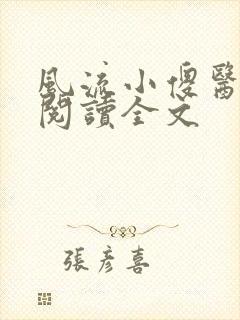 風流小傻醫
閱讀全文
張彥喜